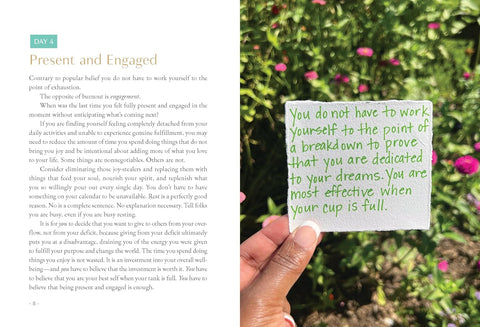 DAY 4
Present and Engaged
Contrary to popular belief you do not have to work yourself to the
point of exhaustion.
The opposite of burnout is engagement.
When was the last time you felt fully present and engaged in the
moment without anticipating what's coming next?
If you are finding yourself feeling completely detached from your
daily activities and unable to experience genuine fulfillment, you may
need to reduce the amount of time you spend doing things that do not
bring you joy and be intentional about adding more of what you love
to your life. Some things are nonnegotiables. Others are not.
Consider eliminating those joy-stealers and replacing them with
things that feed your soul, nourish your spirit, and replenish what
you so willingly pour out every single day. You don't have to have
something on your calendar to be unavailable. Rest is a perfectly good
reason. No is a complete sentence. No explanation necessary. Tell folks
you are busy, even if you are busy resting.
It is for you to decide that you want to give to others from your over-
flow, not from your deficit, because giving from your deficit ultimately
puts you at a disadvantage, draining you of the energy you were given
to fulfill your purpose and change the world. The time you spend doing
things you enjoy is not wasted. It is an investment into your overall well-
being—and you have to believe that the investment is worth it. You have
to believe that you are your best self when your tank is full. You have to
believe that being present and engaged is enough.
- 8 -
You do not have to work
yourself to the point of
a breakdown to prove
that you are dedicated
to your dreams. You are
most effective when
your cup is full.